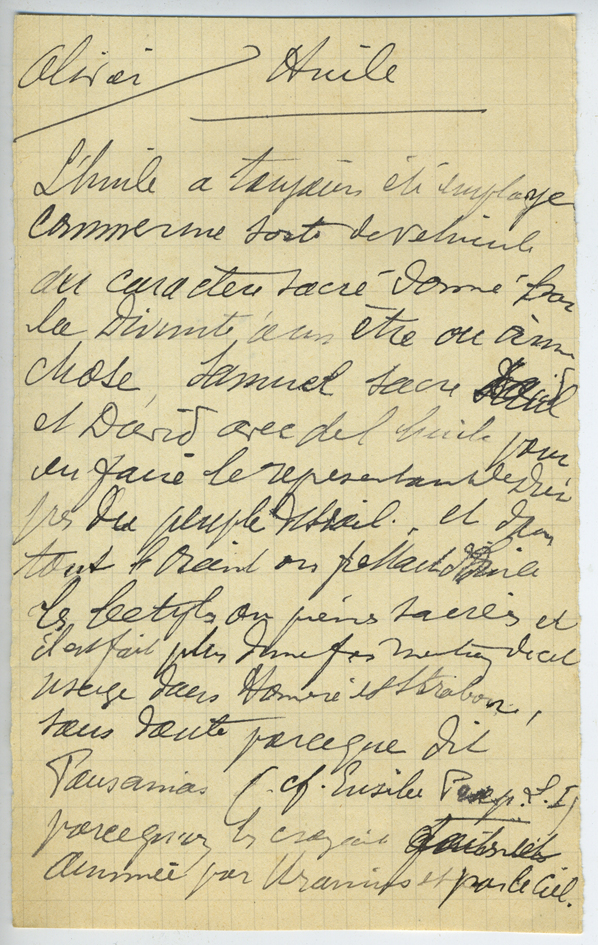 Olivier / Huile
L'huile a toujours été employé
comme une sorte de véhicule
du caractère sacré donné par
la Divinité à un être ou à une
chose, Samuel sacre
et David avec de l'huile pour
en faire le représentant de Dieu
près du peuple d'Israël. et dans
tout l'Orient on frottait d'huile
les betyles ou pierres sacrées et
il est fait plus d'une fois mention de cet
usage dans Homère et Strabon,
sans doute parceque dit
Pausanias (cf. Eusèbe Praep. L. I)
parcequ'on les croyait
animées par Uranius et par le Ciel.